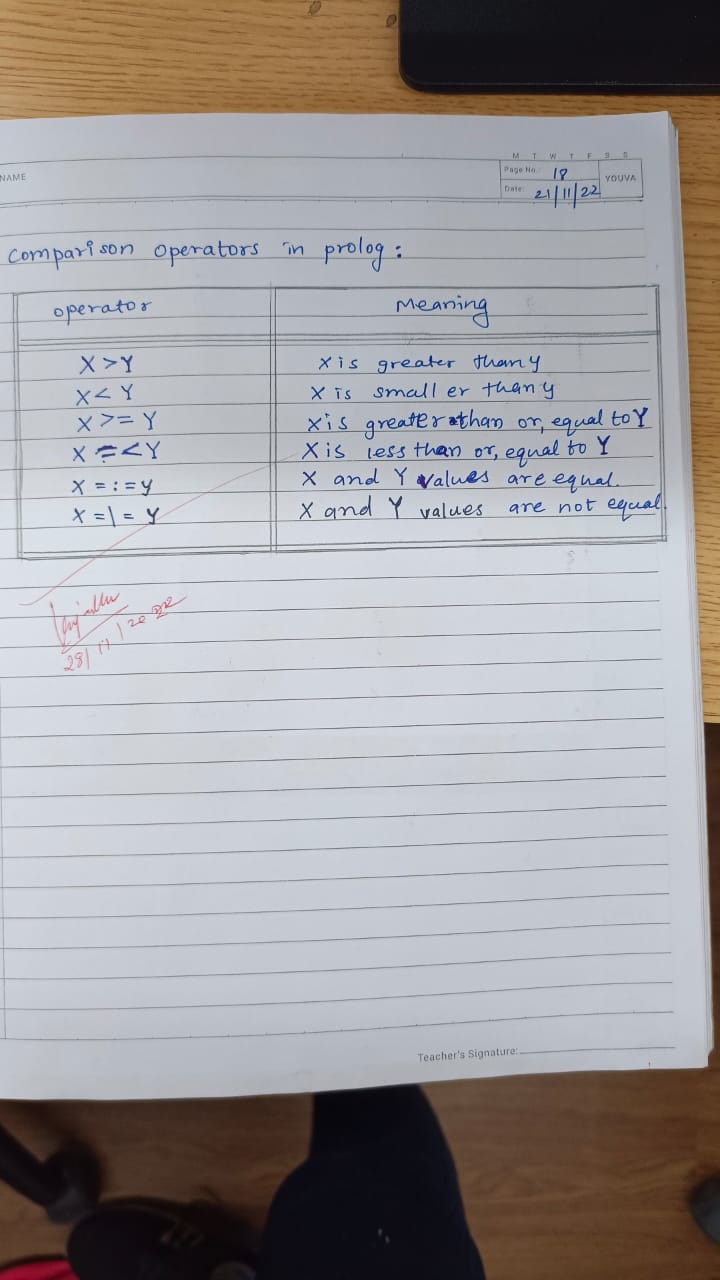 M T W T F S S
NAME
Page No.: 18
YOUVA
Date: 21/11/22
comparison operators in prolog :
operator Meaning
X > Y X is greater than y
X < Y X is small er than y
X >= Y x is greater than or, equal to Y
X =< Y X is less than or, equal to Y
X =:= y X and Y values are equal.
X =\= Y X and Y values are not equal.
28/11/2022
Teacher's Signature: